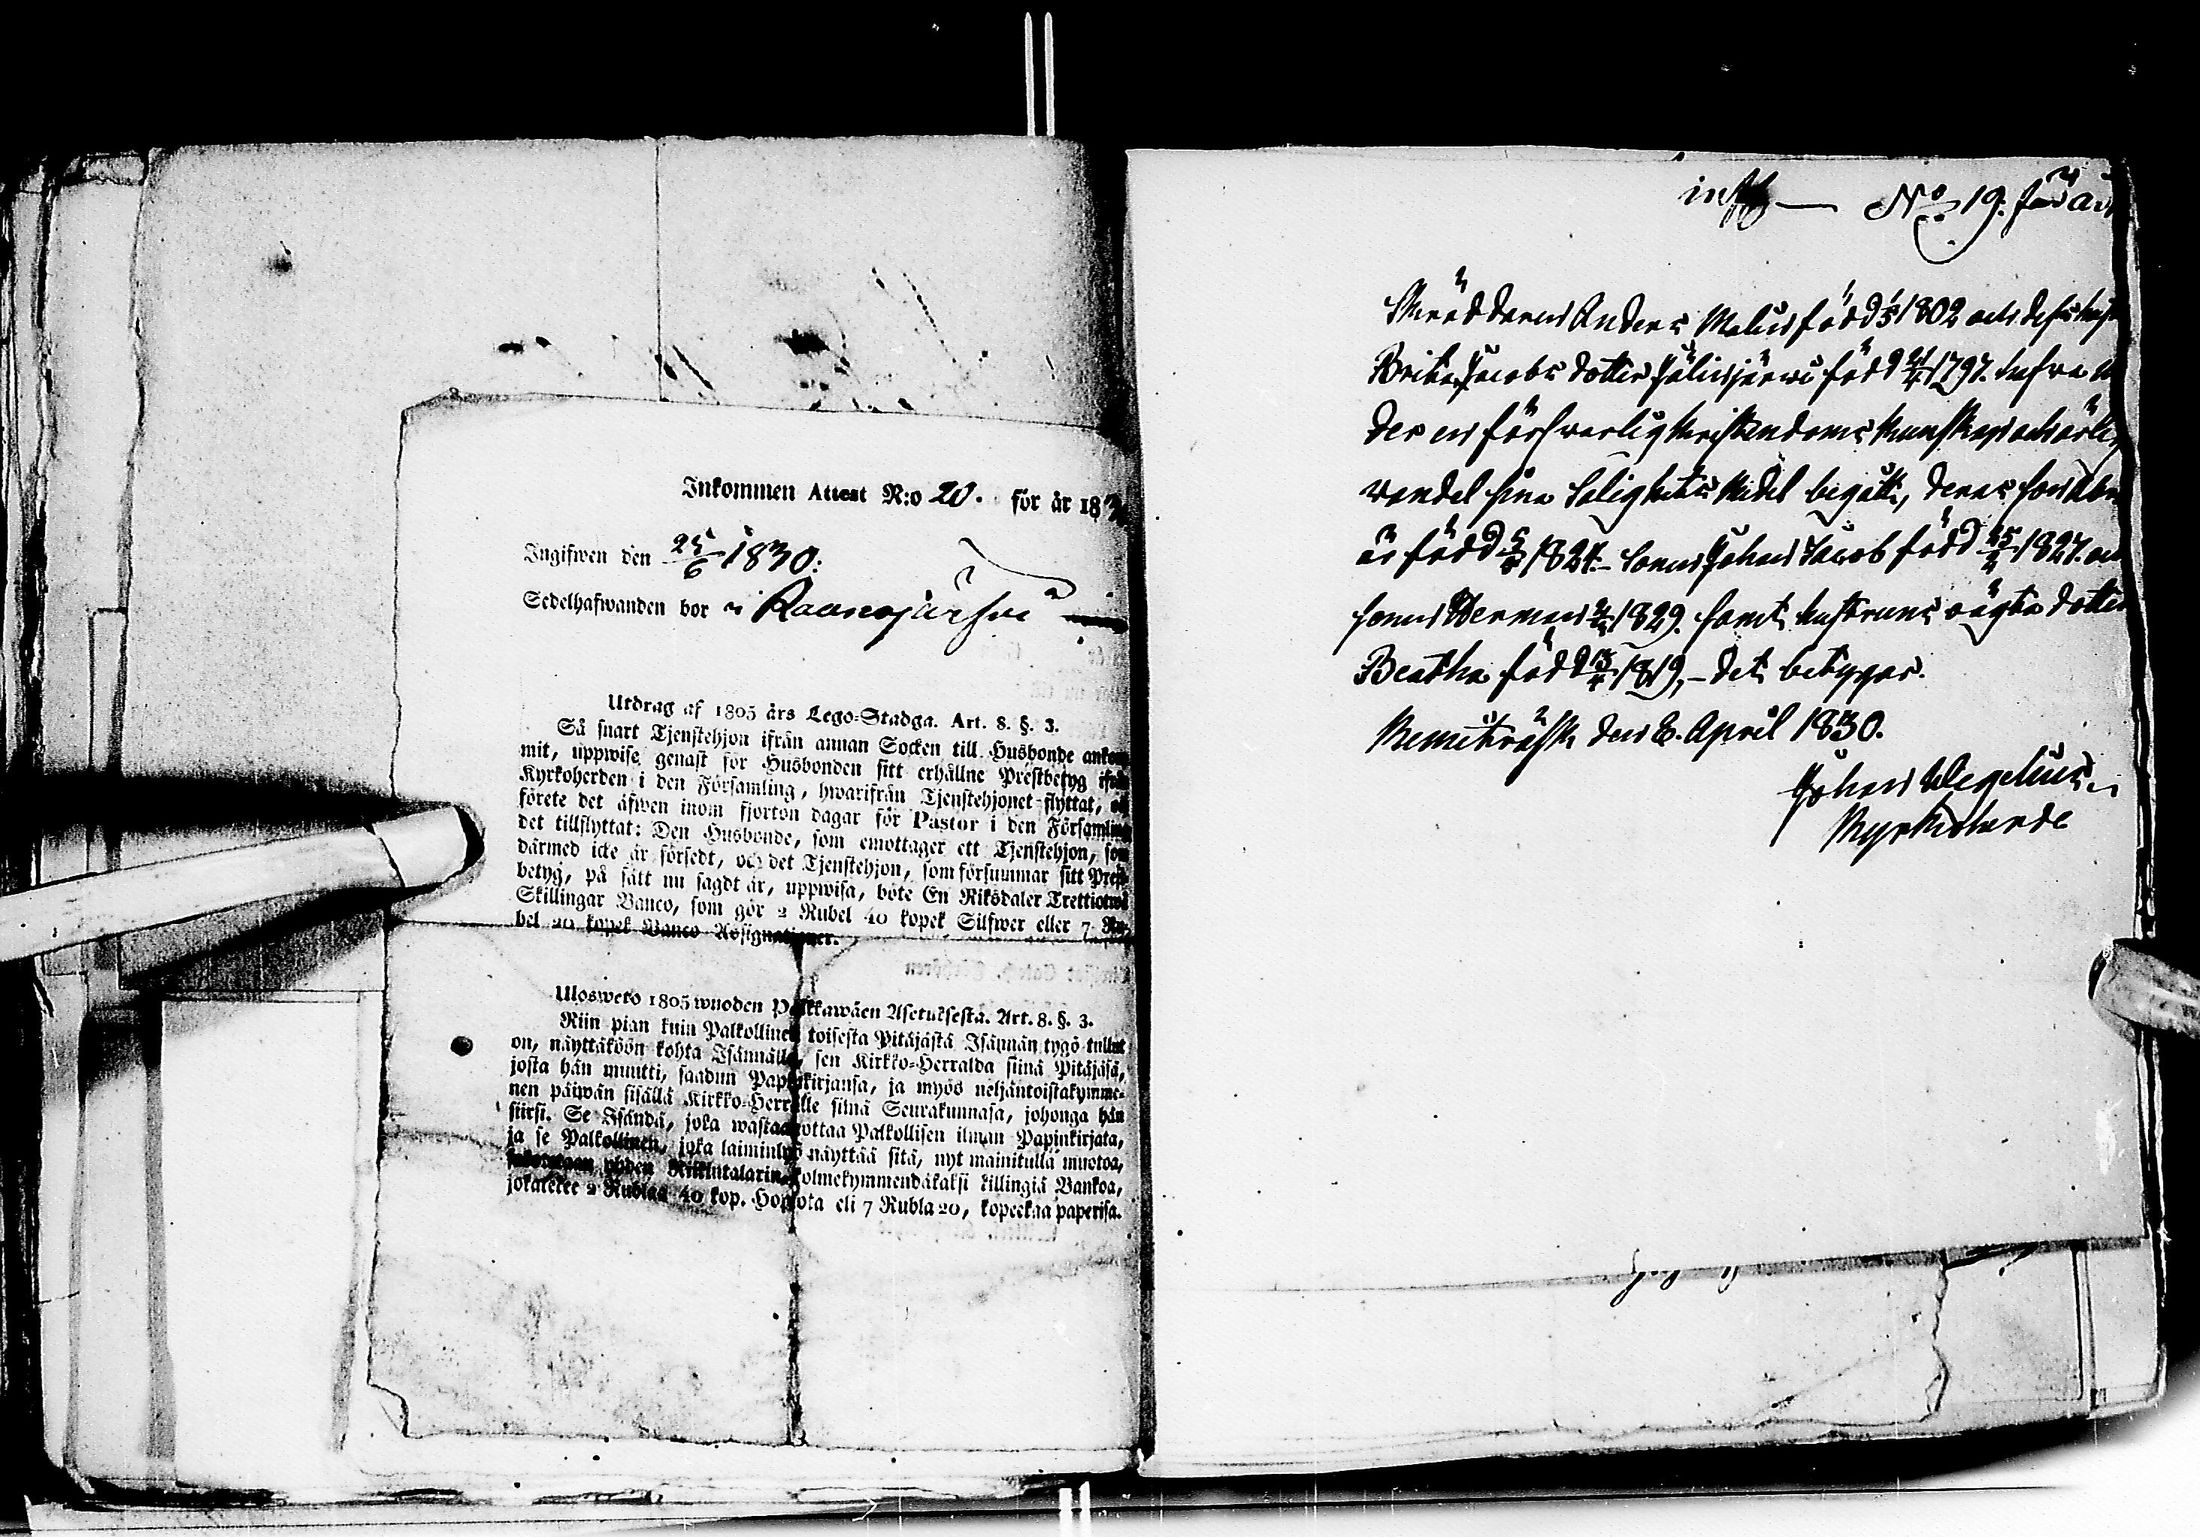 Inkommen Attest N:o 20. för år 183
Ingifwen den 25/6 1830.
Sedelhafwanden bor i Raanojärfvi
Utdrag af 1805 års Lego-Stadga. Art. 8. §. 3.
Så snart Tjenstehjon ifrån annan Socken till Husbonde ankom
mit, uppwise genast för Husbonden sitt erhållne Prestbetyg ifrån
Kyrkoherden i den Församling, hwarifrån Tjenstehjonet flyttat,
förete det äfwen inom fjorton dagar för Pastor i den Församling
det tillflyttat: Den Husbonde, som emottager ett Tjenstehjon, som
därmed icke är försedt, och det Tjenstehjon, som försummar sitt Prest-
betyg, på sätt nu sagdt är, uppwisa, böte En Riksdaler Trettiotwå
Skillingar Banco, som gör 2 Rubel 40 kopek Silfwer eller 7 Ru-
bel 20 kopek Banco Assignationer.
Ulosweto 1805 wuoden Palkkawäen Asetuksesta. Art. 8. §. 3.
Niin pian kuin Palkollinen toisesta Pitäjästä Isännän tygö tullut
on, näyttäköön kohta Isännälle, sen Kirkko-Herralda siinä Pitäjäsä,
josta hän muutti, saadun Papinkirjansa, ja myös neljäntoistakymme-
nen päiwän sisällä Kirkko-Herralle siinä Seurakunnasa, johonga hän
siirsi. Se Isändä, joka wastaanottaa Palkollisen ilman Papinkirjata,
ja se Palkollinen, joka laiminlyö näyttää sitä, nyt mainitulla muotoa,
sakotetaan yhden Riikintalarin kolmekymmendäkaksi killingiä Bankoa,
jokatekee 2 Rublaa 40 kop. Hopiota eli 7 Rubla 20, kopeekaa paperisa.
No 19. för år
Skräddaren Anders Malin född 1802 och dess
Brita Jacobs dotter född 21/4 1797. hafva
der en försvarlig kristendoms kunskap och ärlig
vandel sina Salighets Medel begått, deras son
är född 1824. Sonen Johan Jacob född 25/2 1827. och
sonen Herman 1829. samt hustruns oägta dotter
Beatha född 13/4 1819, – det betygar.
Kemiträsk den 8. April 1830.
Johan Wegelius
Kyrkoherde